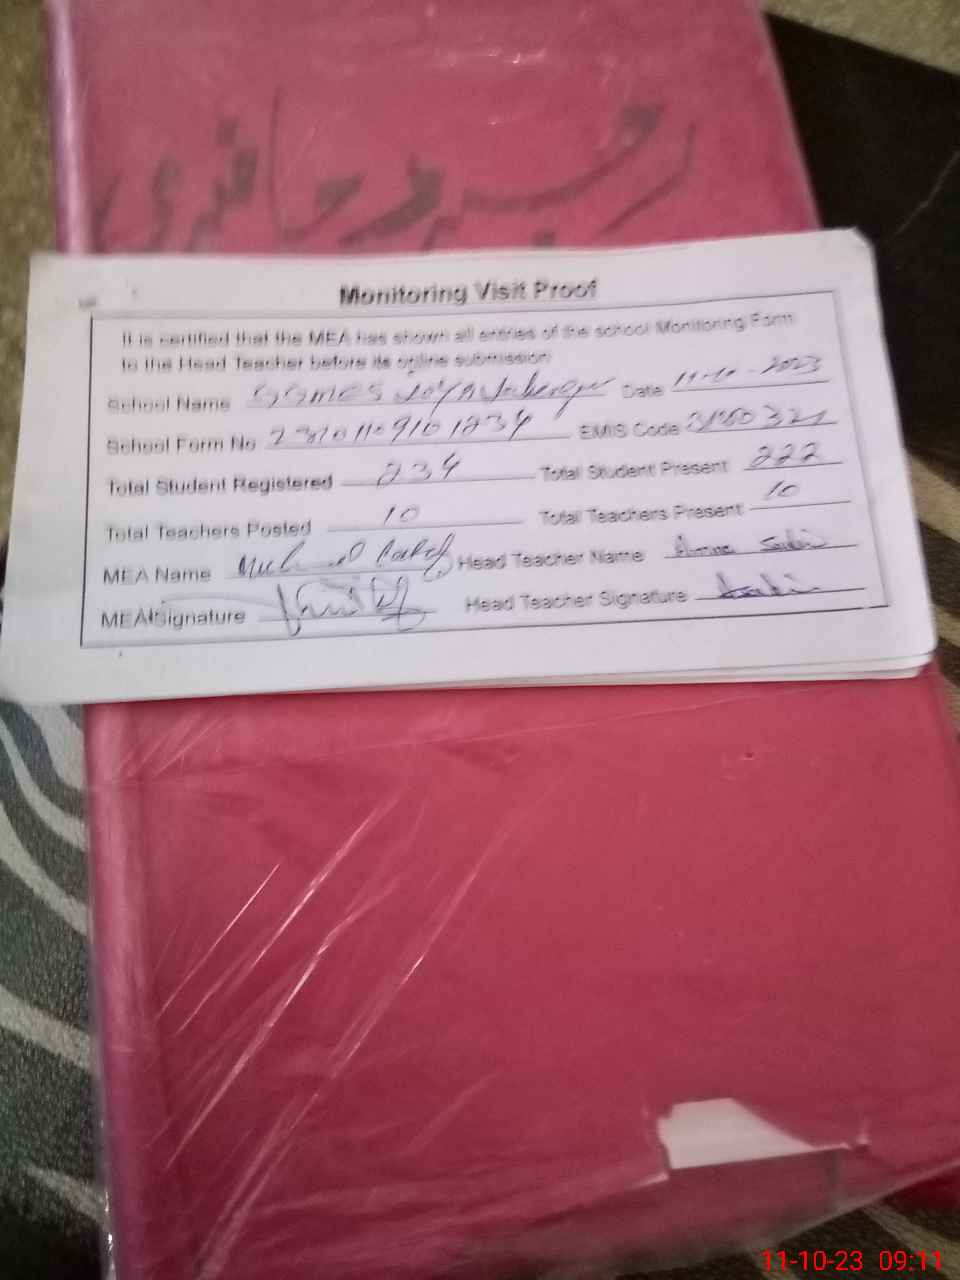 رجسٹر حاضری
Monitoring Visit Proof
It is certified that the MEA has shown all entries of the school Monitoring Form
to the Head Teacher before its online submission
School Name GGMES Date 11-10-2023
School Form No EMIS Code
Total Student Registered 234 Total Student Present 222
Total Teachers Posted 10 Total Teachers Present 10
MEA Name Head Teacher Name
MEA Signature Head Teacher Signature
11-10-23 09:11